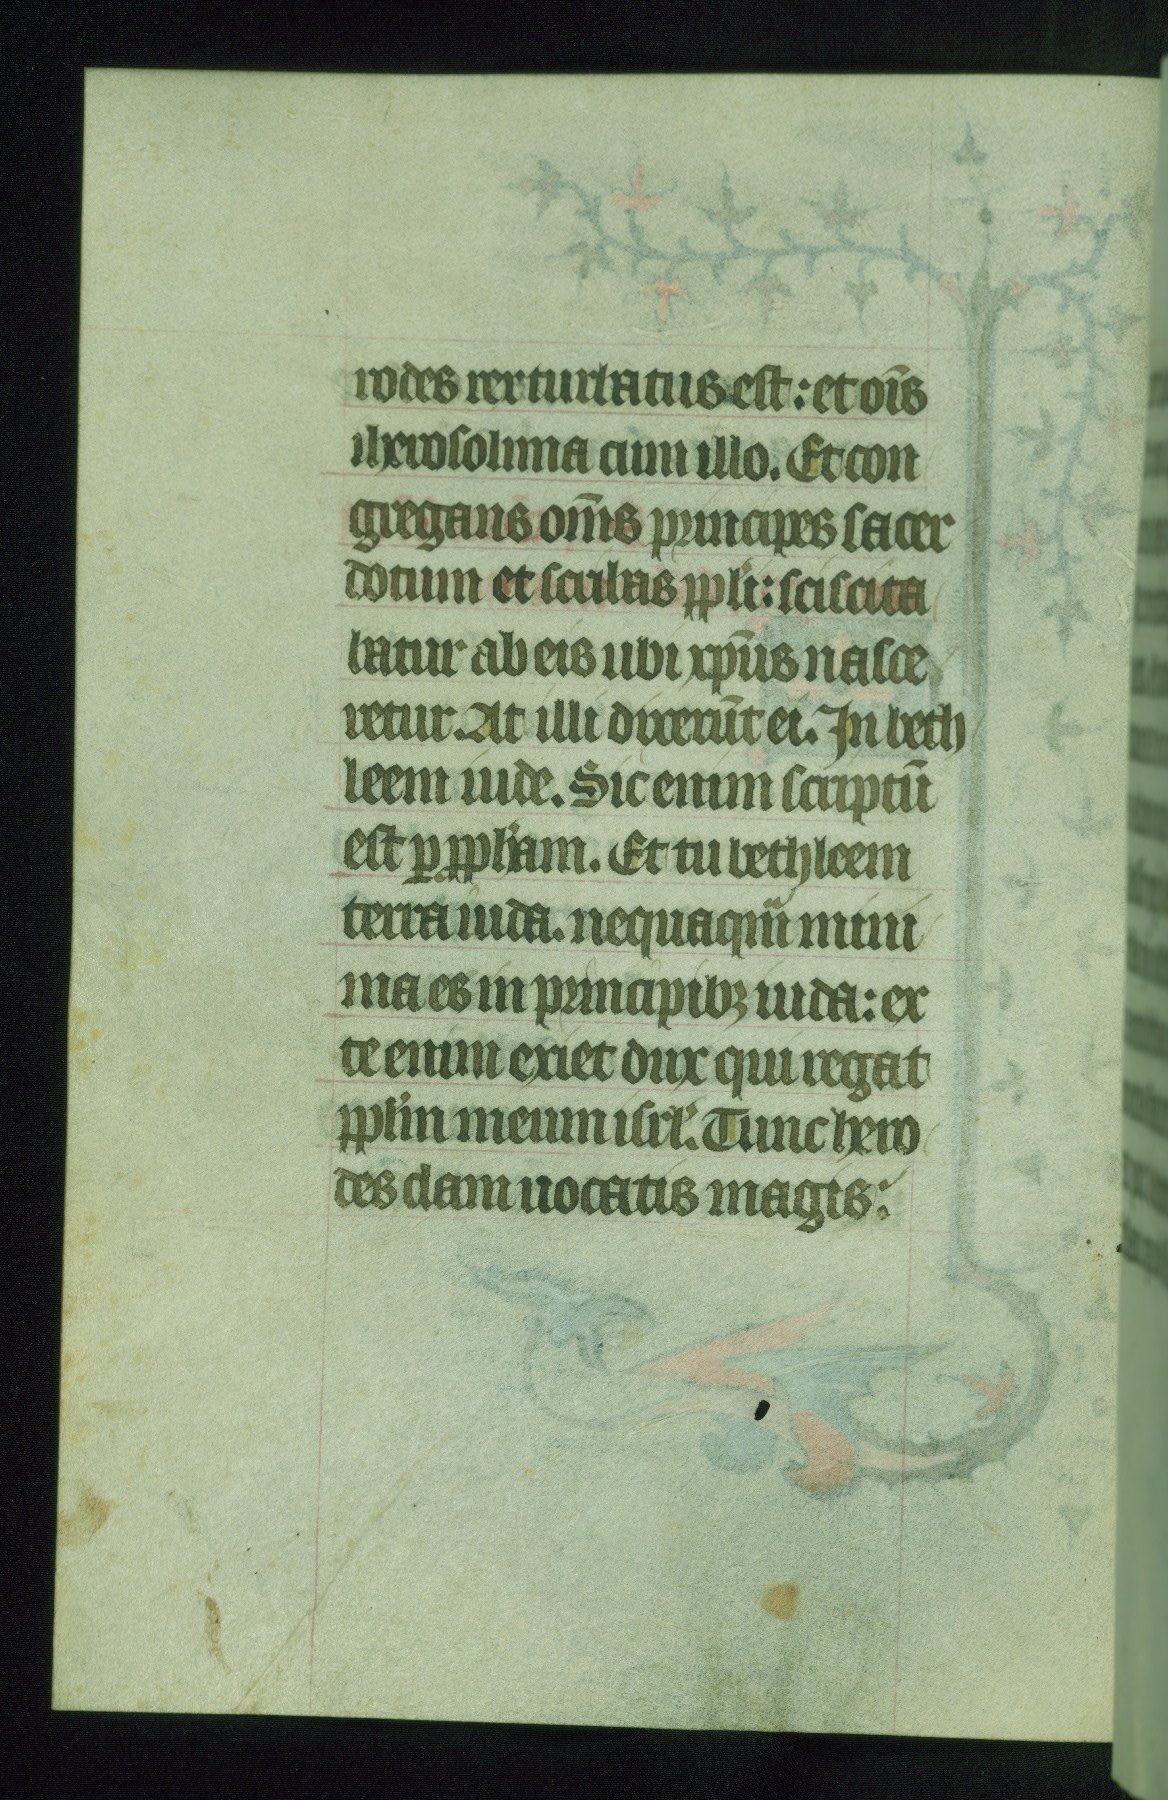 rodes perturbatus est: et oīs
iherosolima cum illo. Et con
gregans om̄s principes sacer
dotum et scribas ppl'i: sciscita
batur ab eis ubi xp̄us nasce
retur. At illi dixerūt ei. In beth
leem iude. Sic enim scriptū
est ꝑ ꝓph'am. Et tu bethleem
terra iuda. nequaqua̅ mini
ma es in principibꝫ iuda: ex
te enim exiet dux qui regat
ppl'm meum isrl'. Tunc hero
des clam uocatis magis: